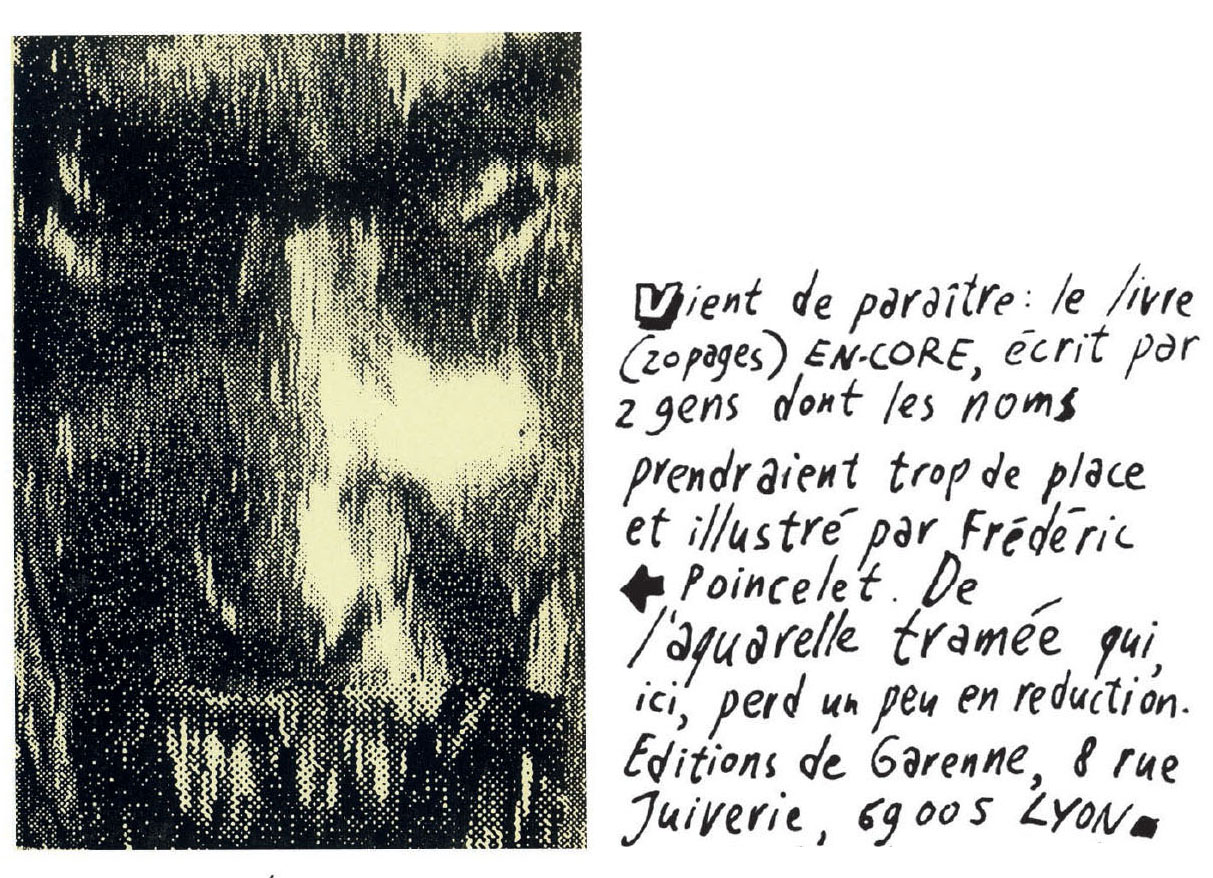 Vient de paraître : le livre
(20 pages) EN-CORE, écrit par
2 gens dont les noms
prendraient trop de place
et illustré par Frédéric
Poincelet. De
l'aquarelle tramée qui,
ici, perd un peu en reduction.
Editions de Garenne, 8 rue
Juiverie, 69005 LYON